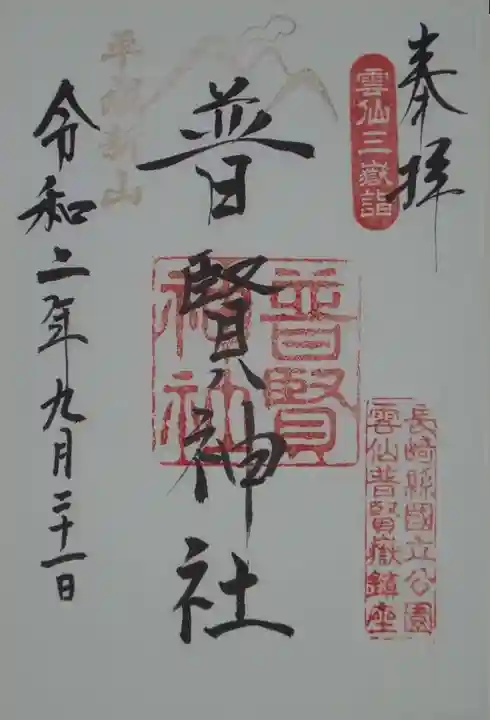 奉拝
雲仙三嶽詣
長崎縣國立公園
雲仙普賢嶽鎮座
普賢神社
普賢
神社
平成新山
令和二年九月二十一日